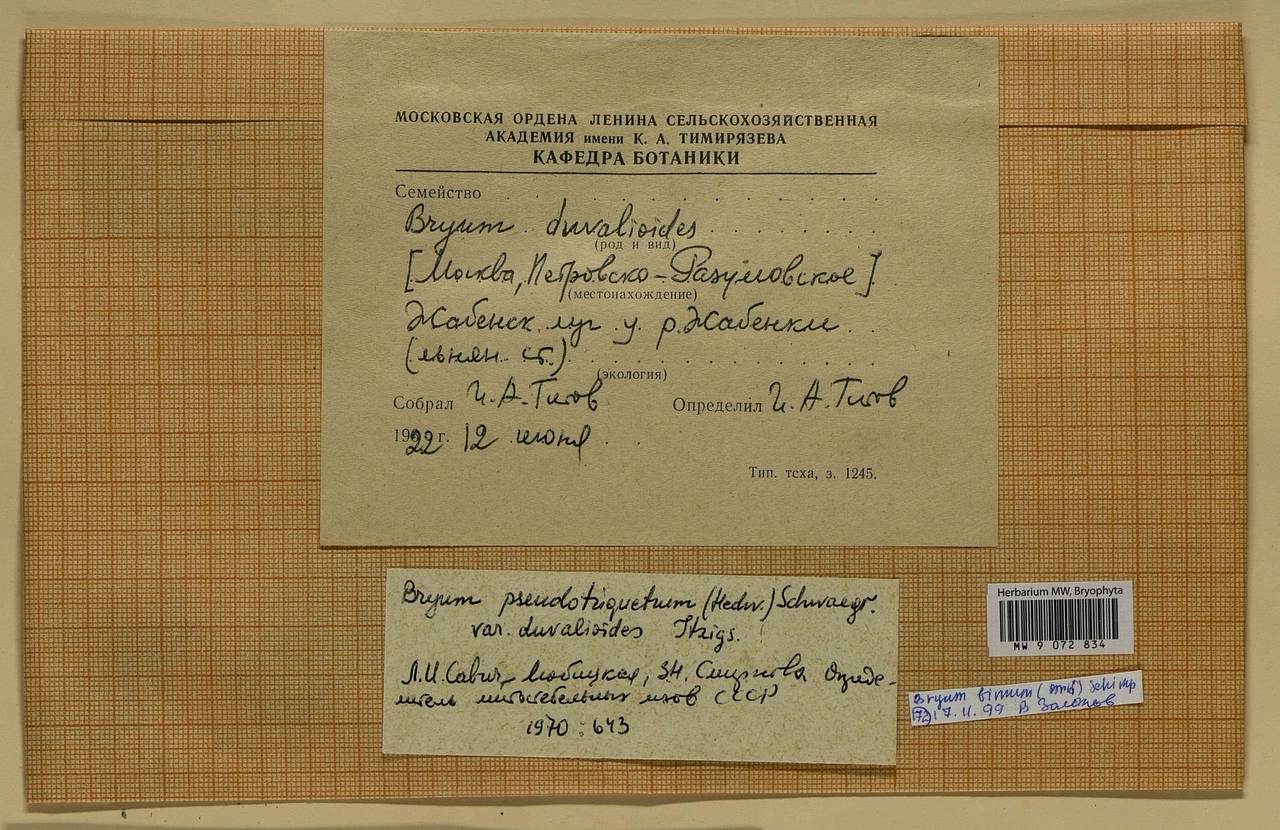 МОСКОВСКАЯ ОРДЕНА ЛЕНИНА СЕЛЬСКОХОЗЯЙСТВЕННАЯ
АКАДЕМИЯ имени К. А. ТИМИРЯЗЕВА
КАФЕДРА БОТАНИКИ
Семейство
Bryum duvalioides
(род и вид)
[Москва, Петровско-Разумовское]
(местонахождение)
Жабенск. луг у р. Жабенки
(льнян. ст.)
(экология)
Собрал И. А. Титов Определил И. А. Титов
1922 г. 12 июня
Тип. тсха, з. 1245.
Bryum pseudotriquetrum (Hedw.) Schwaegr.
var. duvalioides Itzigs.
Л.И. Савич-Любицкая, З.Н. Смирнова Опреде-
литель листостебельных мхов СССР
1970 : 643
Herbarium MW, Bryophyta
MW 9 072 834
Bryum bimum () Schimp
17.11.99 В